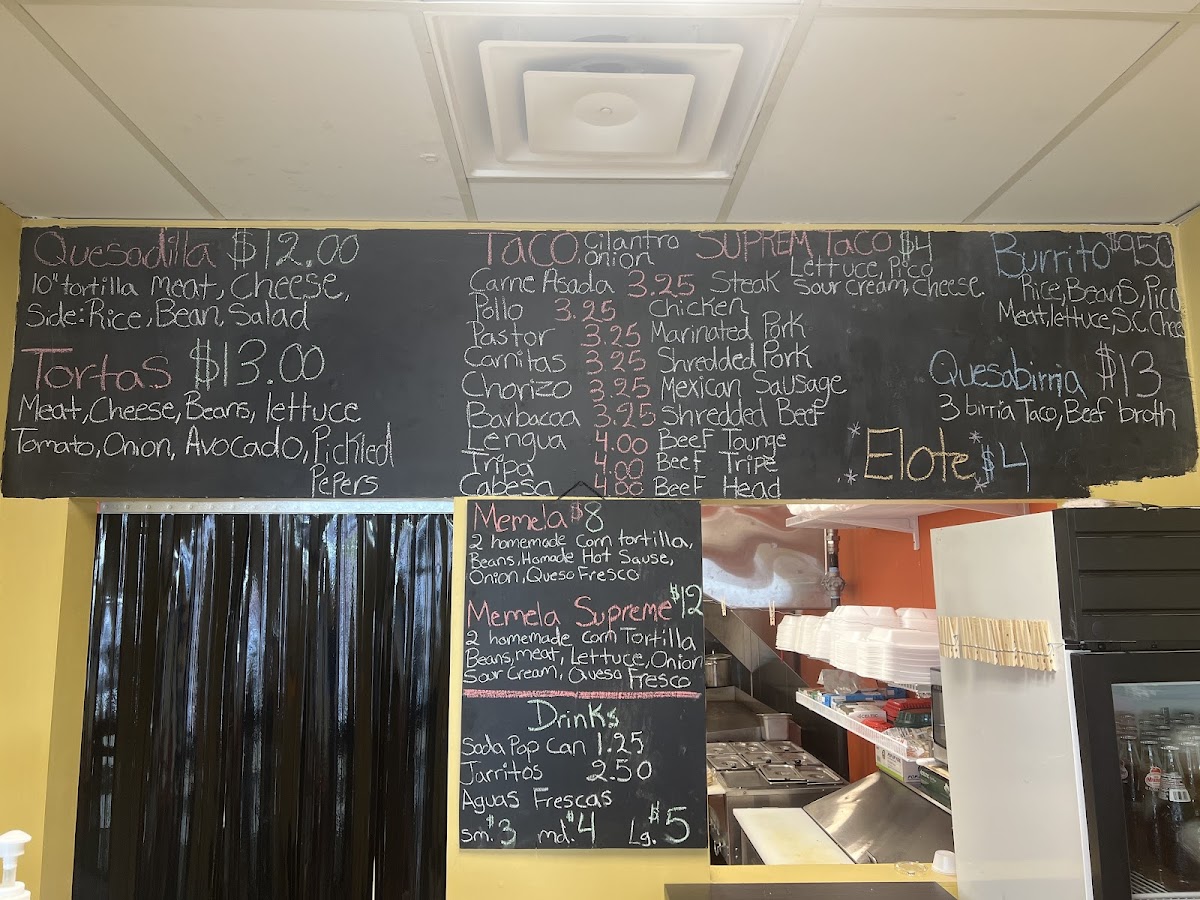 Quesadilla $12.00
10" tortilla meat, Cheese,
Side: Rice, Bean, Salad
Tortas $13.00
Meat, Cheese, Beans, lettuce
Tomato, Onion, Avocado, Pickled
Pepers
TACO Cilantro
onion
Carne Asada 3.25 Steak
Pollo 3.25 Chicken
Pastor 3.25 Marinated Pork
Carnitas 3.25 Shredded Pork
Chorizo 3.25 Mexican Sausage
Barbacoa 3.25 Shredded Beef
Lengua 4.00 Beef Tounge
Tripa 4.00 Beef Tripe
Cabesa 4.00 Beef Head
SUPREM TACO $4
Lettuce, Pico
Sour cream, Cheese
Burrito $950
Rice, Beans, Pico
Meat, lettuce, S.C. Chees
Quesabirria $13
3 birria Taco, Beef broth
Elote $4
Memela $8
2 homemade Corn tortilla,
Beans, Homade Hot Sause,
Onion, Queso Fresco
Memela Supreme $12
2 homemade Corn Tortilla
Beans, meat, Lettuce, Onion
Sour Cream, Queso Fresco
Drinks
Soda Pop Can 1.25
Jarritos 2.50
Aguas Frescas
sm. $3 md. $4 Lg. $5